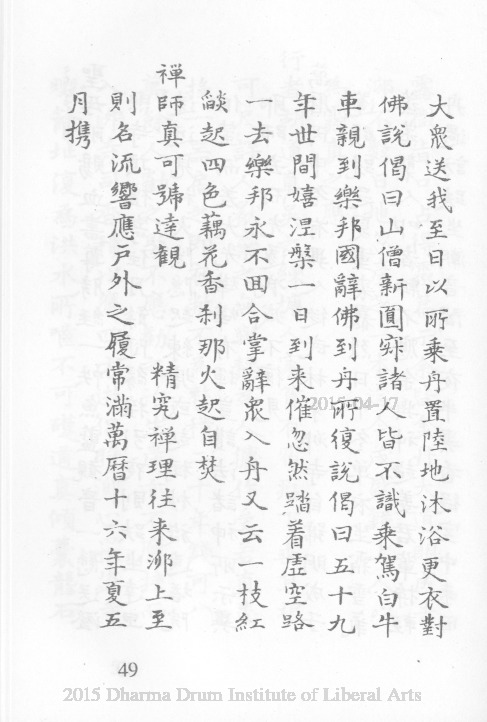 大衆送我至日以所乗丹置陸地沐浴更衣對
佛說偈曰山僧新圓寂諸人皆不識乗駕白牛
車親到樂邦國辭佛到丹所復說偈曰五十九
年世間嬉涅槃一日到来催忽然踏着虛空路
一去樂邦永不囬合掌辭衆入丹又云一枝紅
燄起四色藕花香刹那火起自焚
禅師真可號達観 精究禅理往来泖上至
則名流響應戸外之履常滿萬曆十六年夏五
月携
2015-04-17
49
2015 Dharma Drum Institute of Liberal Arts